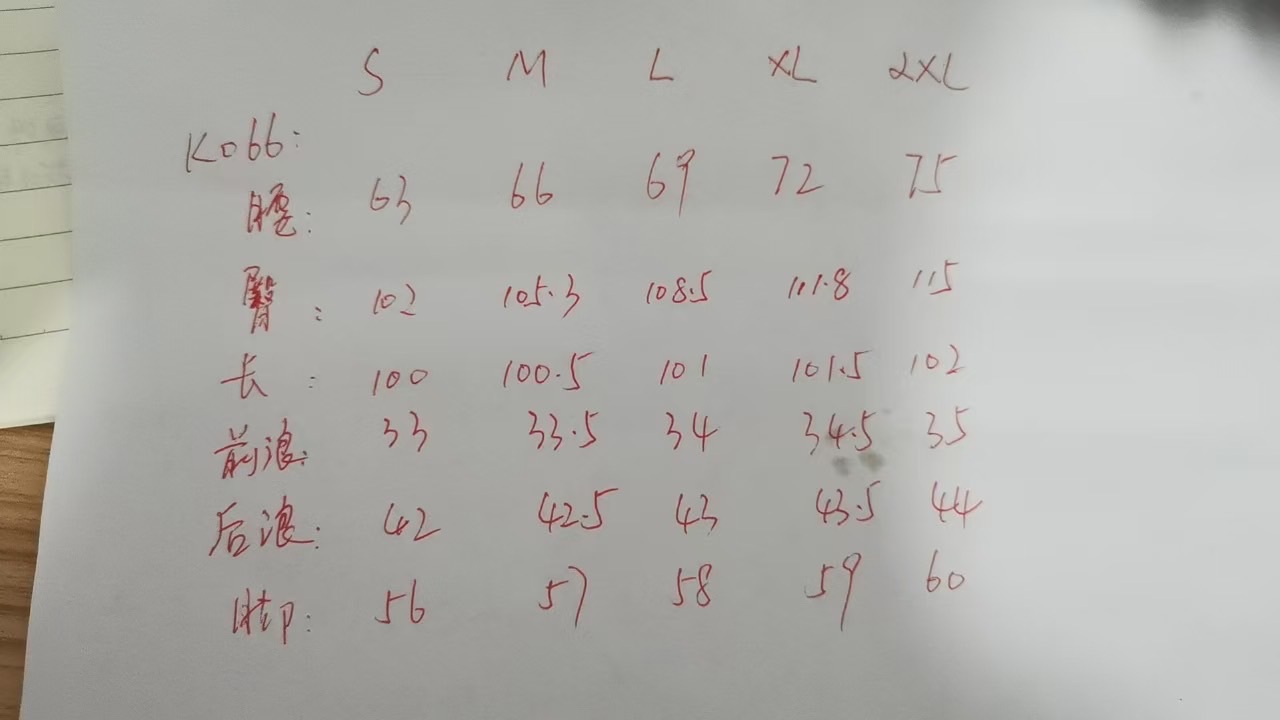 S M L XL 2XL
K066:
腰: 63 66 69 72 75
臀: 102 105.3 108.5 111.8 115
长: 100 100.5 101 101.5 102
前浪: 33 33.5 34 34.5 35
后浪: 42 42.5 43 43.5 44
脚: 56 57 58 59 60